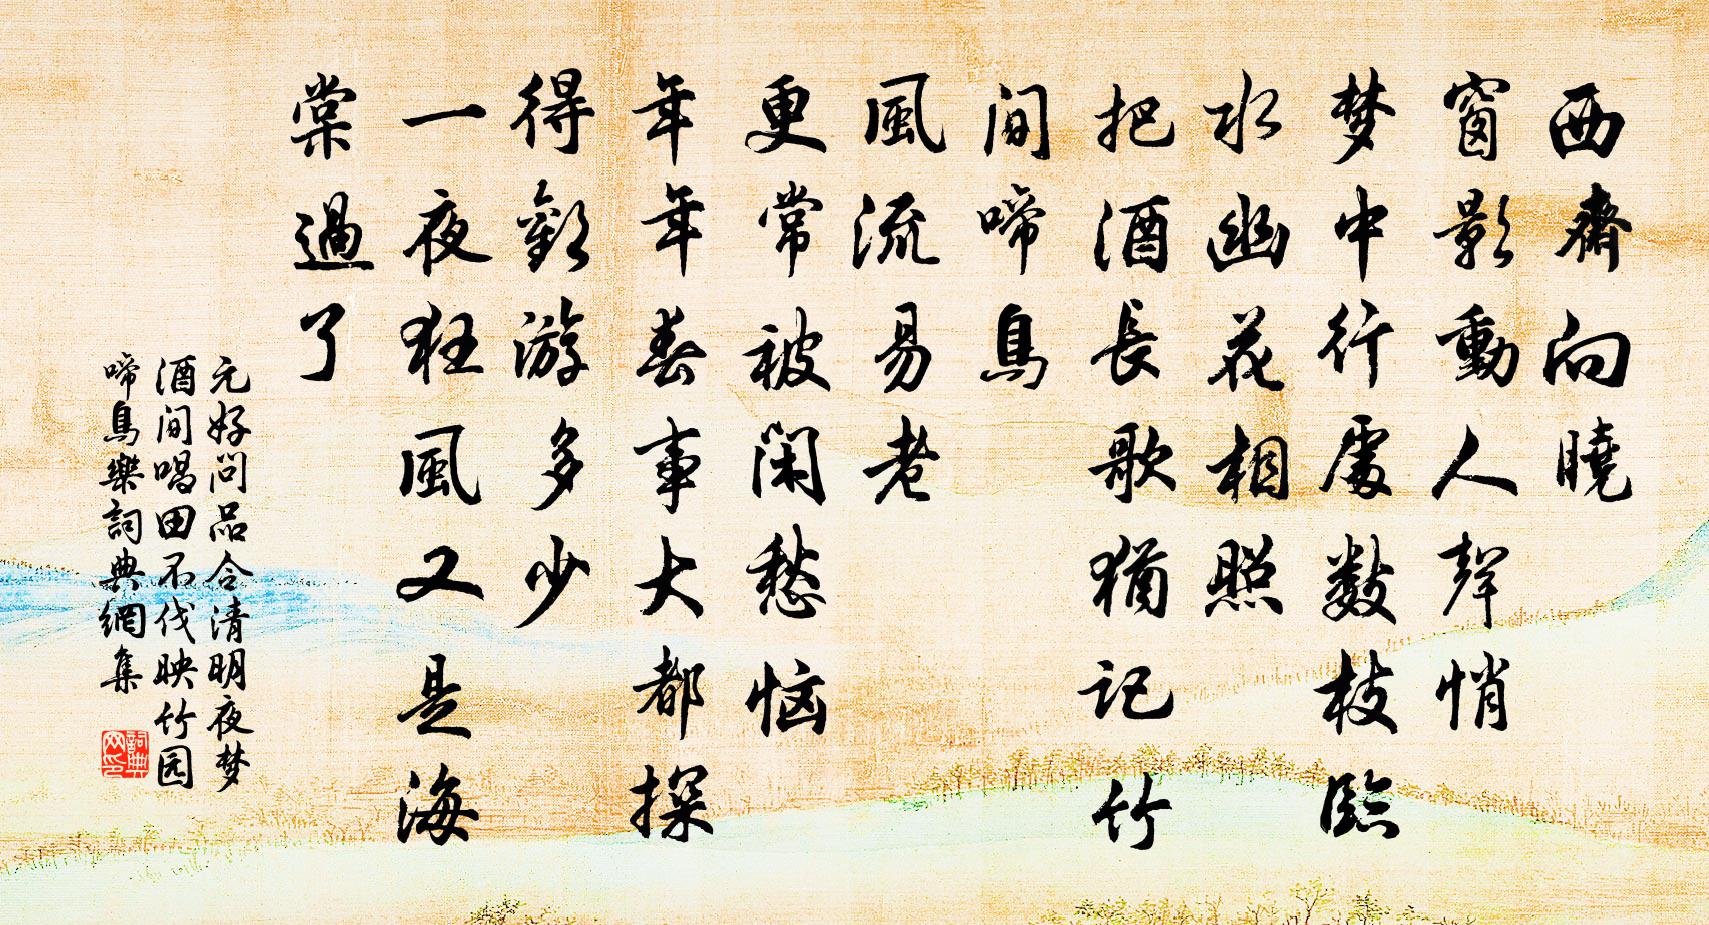 西齋向曉
窗影動人聲悄
梦中行處數枝臨
水幽花相照
把酒長歌猶記竹
间啼鳥
風流易老
更常被闲愁恼
年年春事大都探
得歡游多少
一夜狂風又是海
棠過了
元好问品令清明夜梦
酒间唱田不伐映竹园
啼鳥樂詞典網集
詞典网印